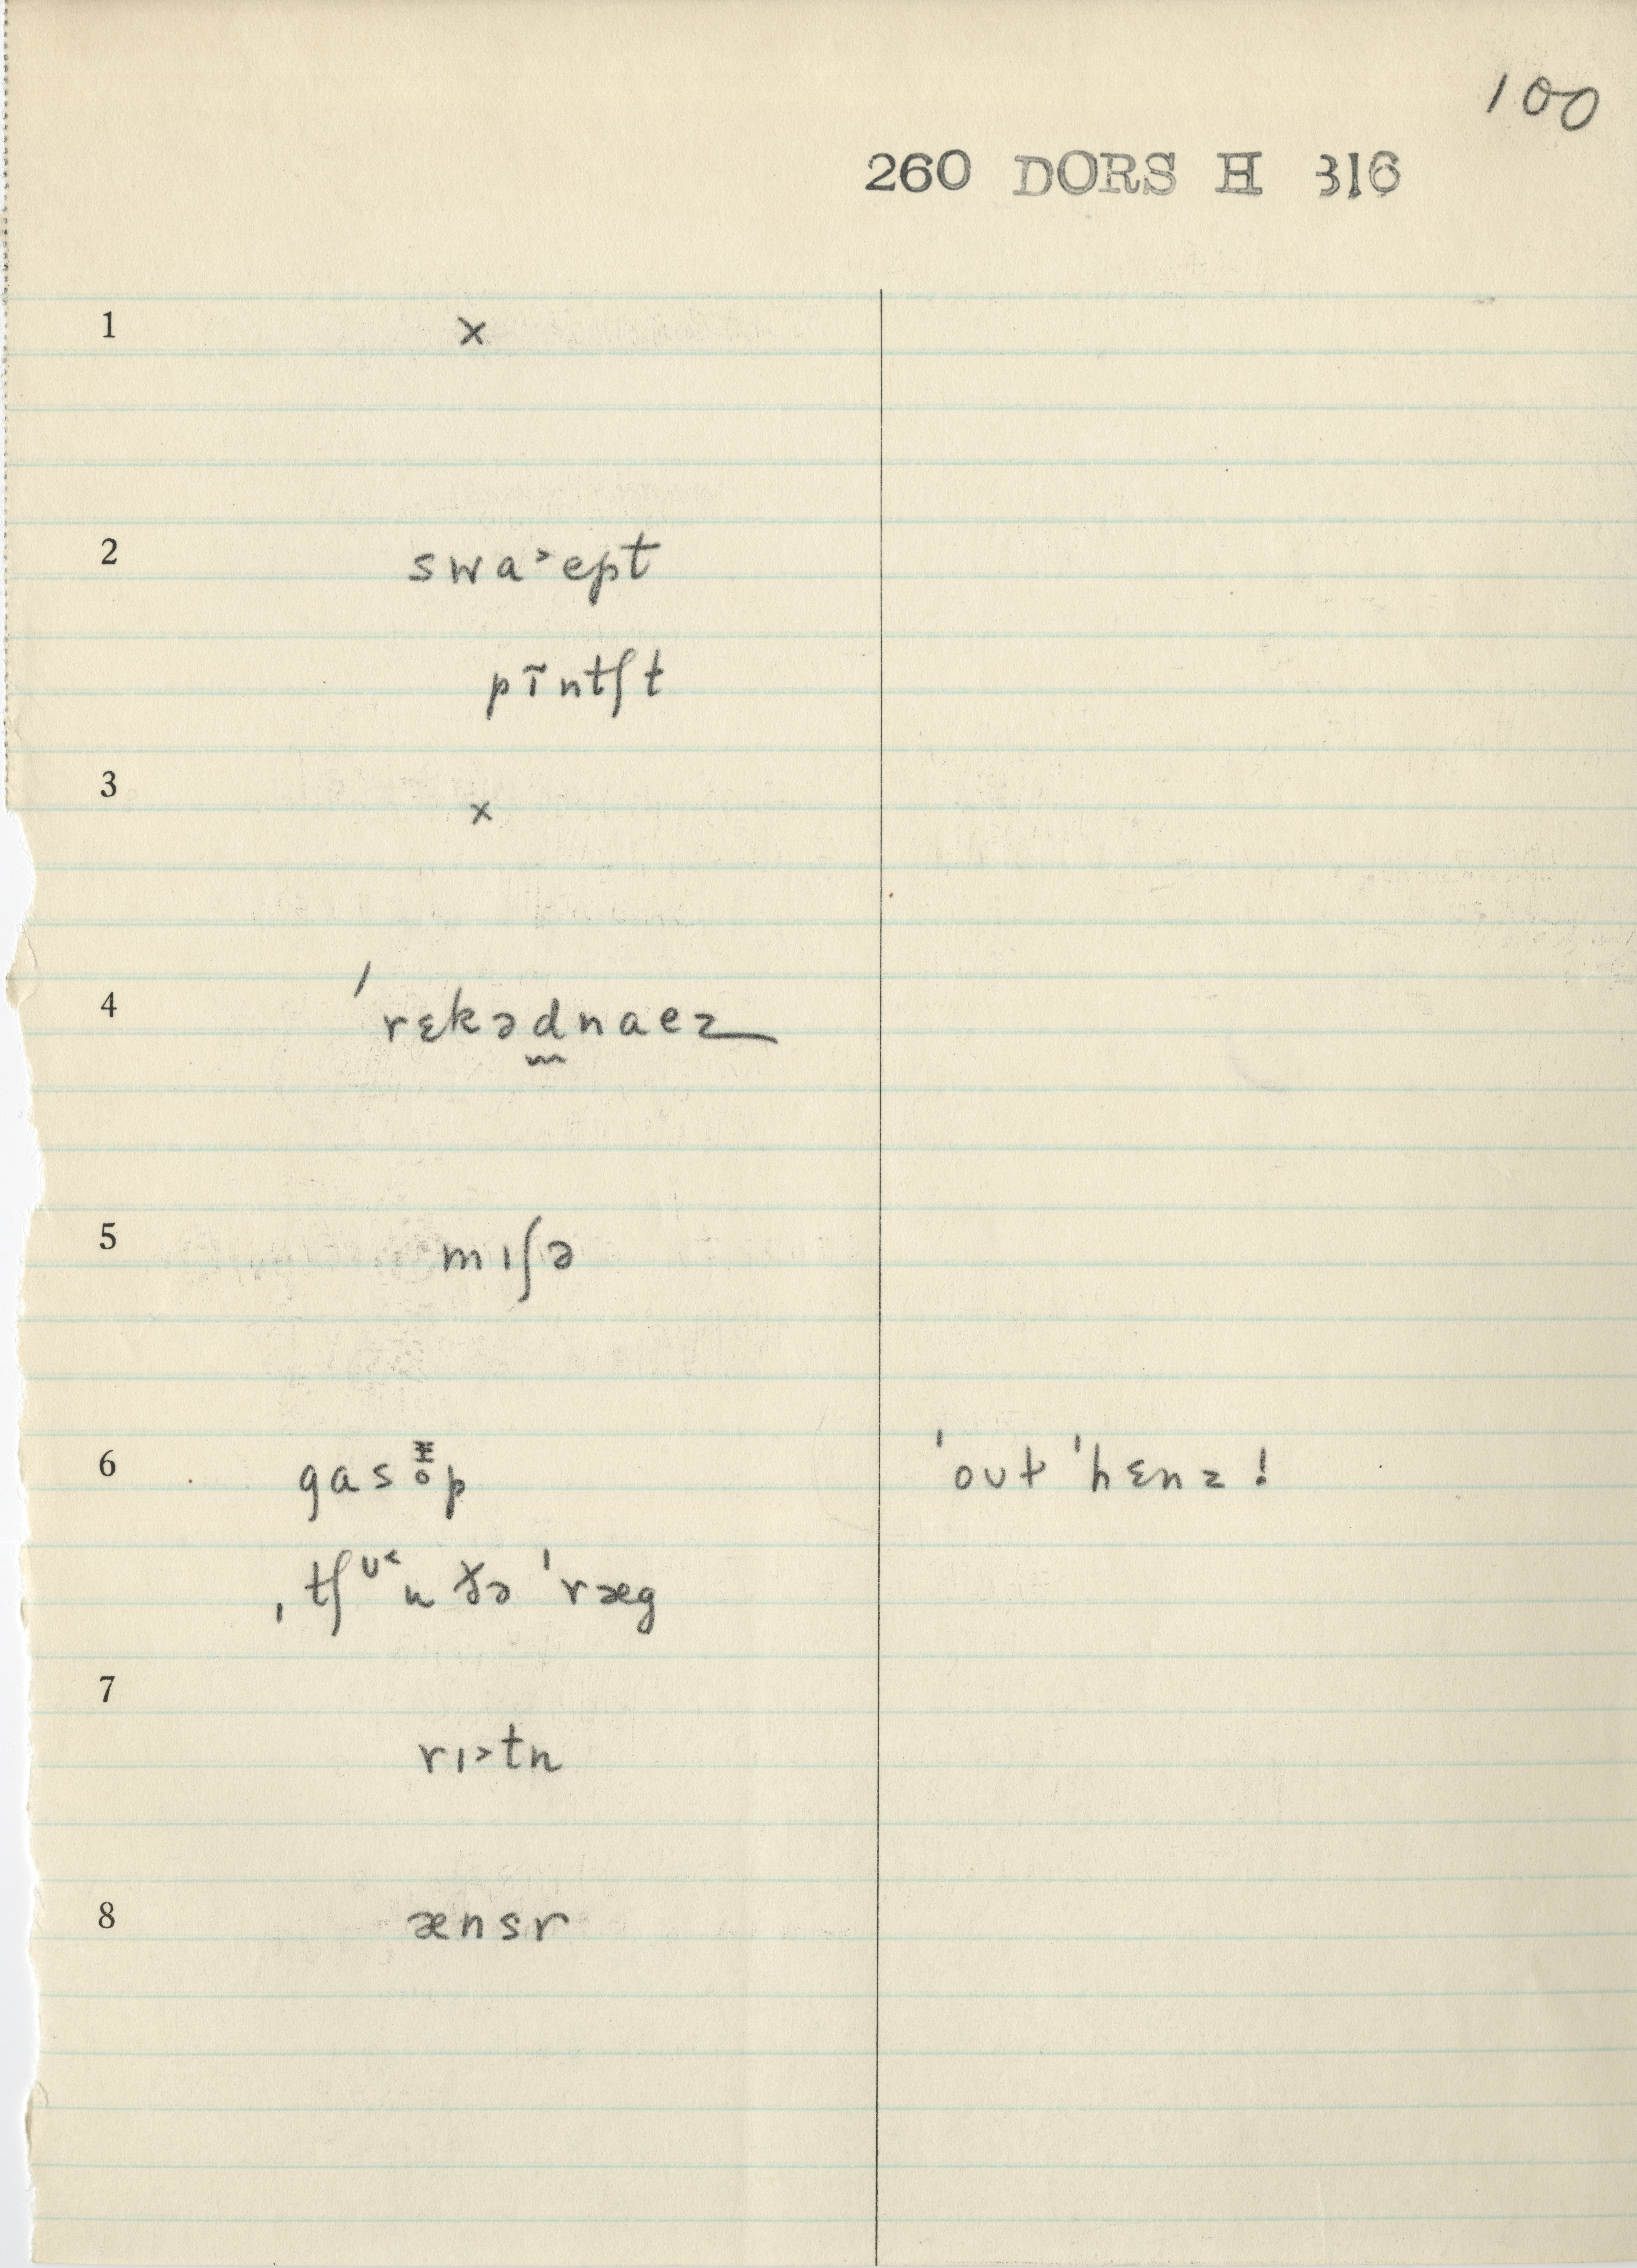 100
260 DORS H 316
1 x
2 swa˃ept
pĩntʃt
3 x
4 ˈrɛkəd̰naez
5 mıʃə
6 gasp ˈoʊt ˈhɛnz!
ˌtʃᶷ˂n ðə ˈræg
7 rı˃tn
8 ænsr